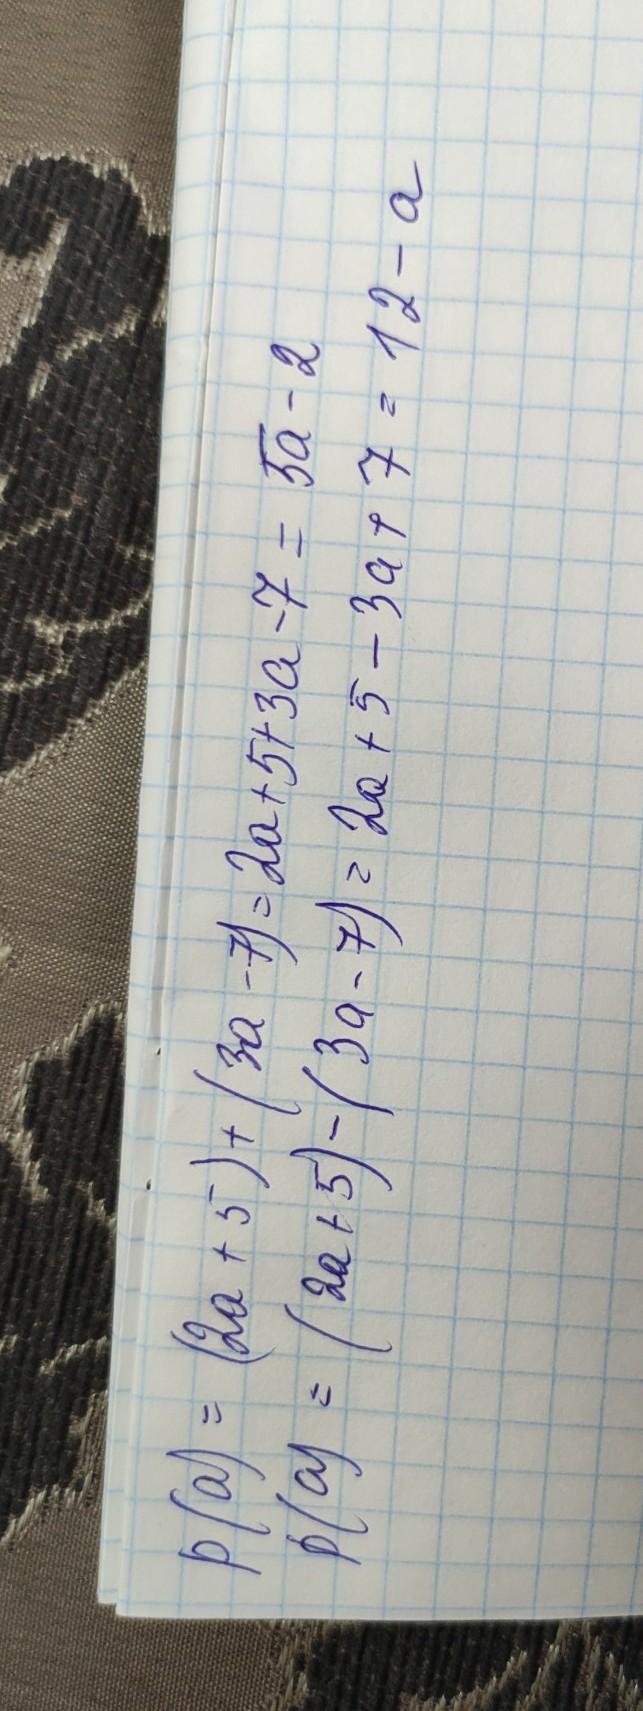 p(a) = (2a + 5) + (3a - 7) = 2a + 5 + 3a - 7 = 5a - 2
p(a) = (2a + 5) - (3a - 7) = 2a + 5 - 3a + 7 = 12 - a